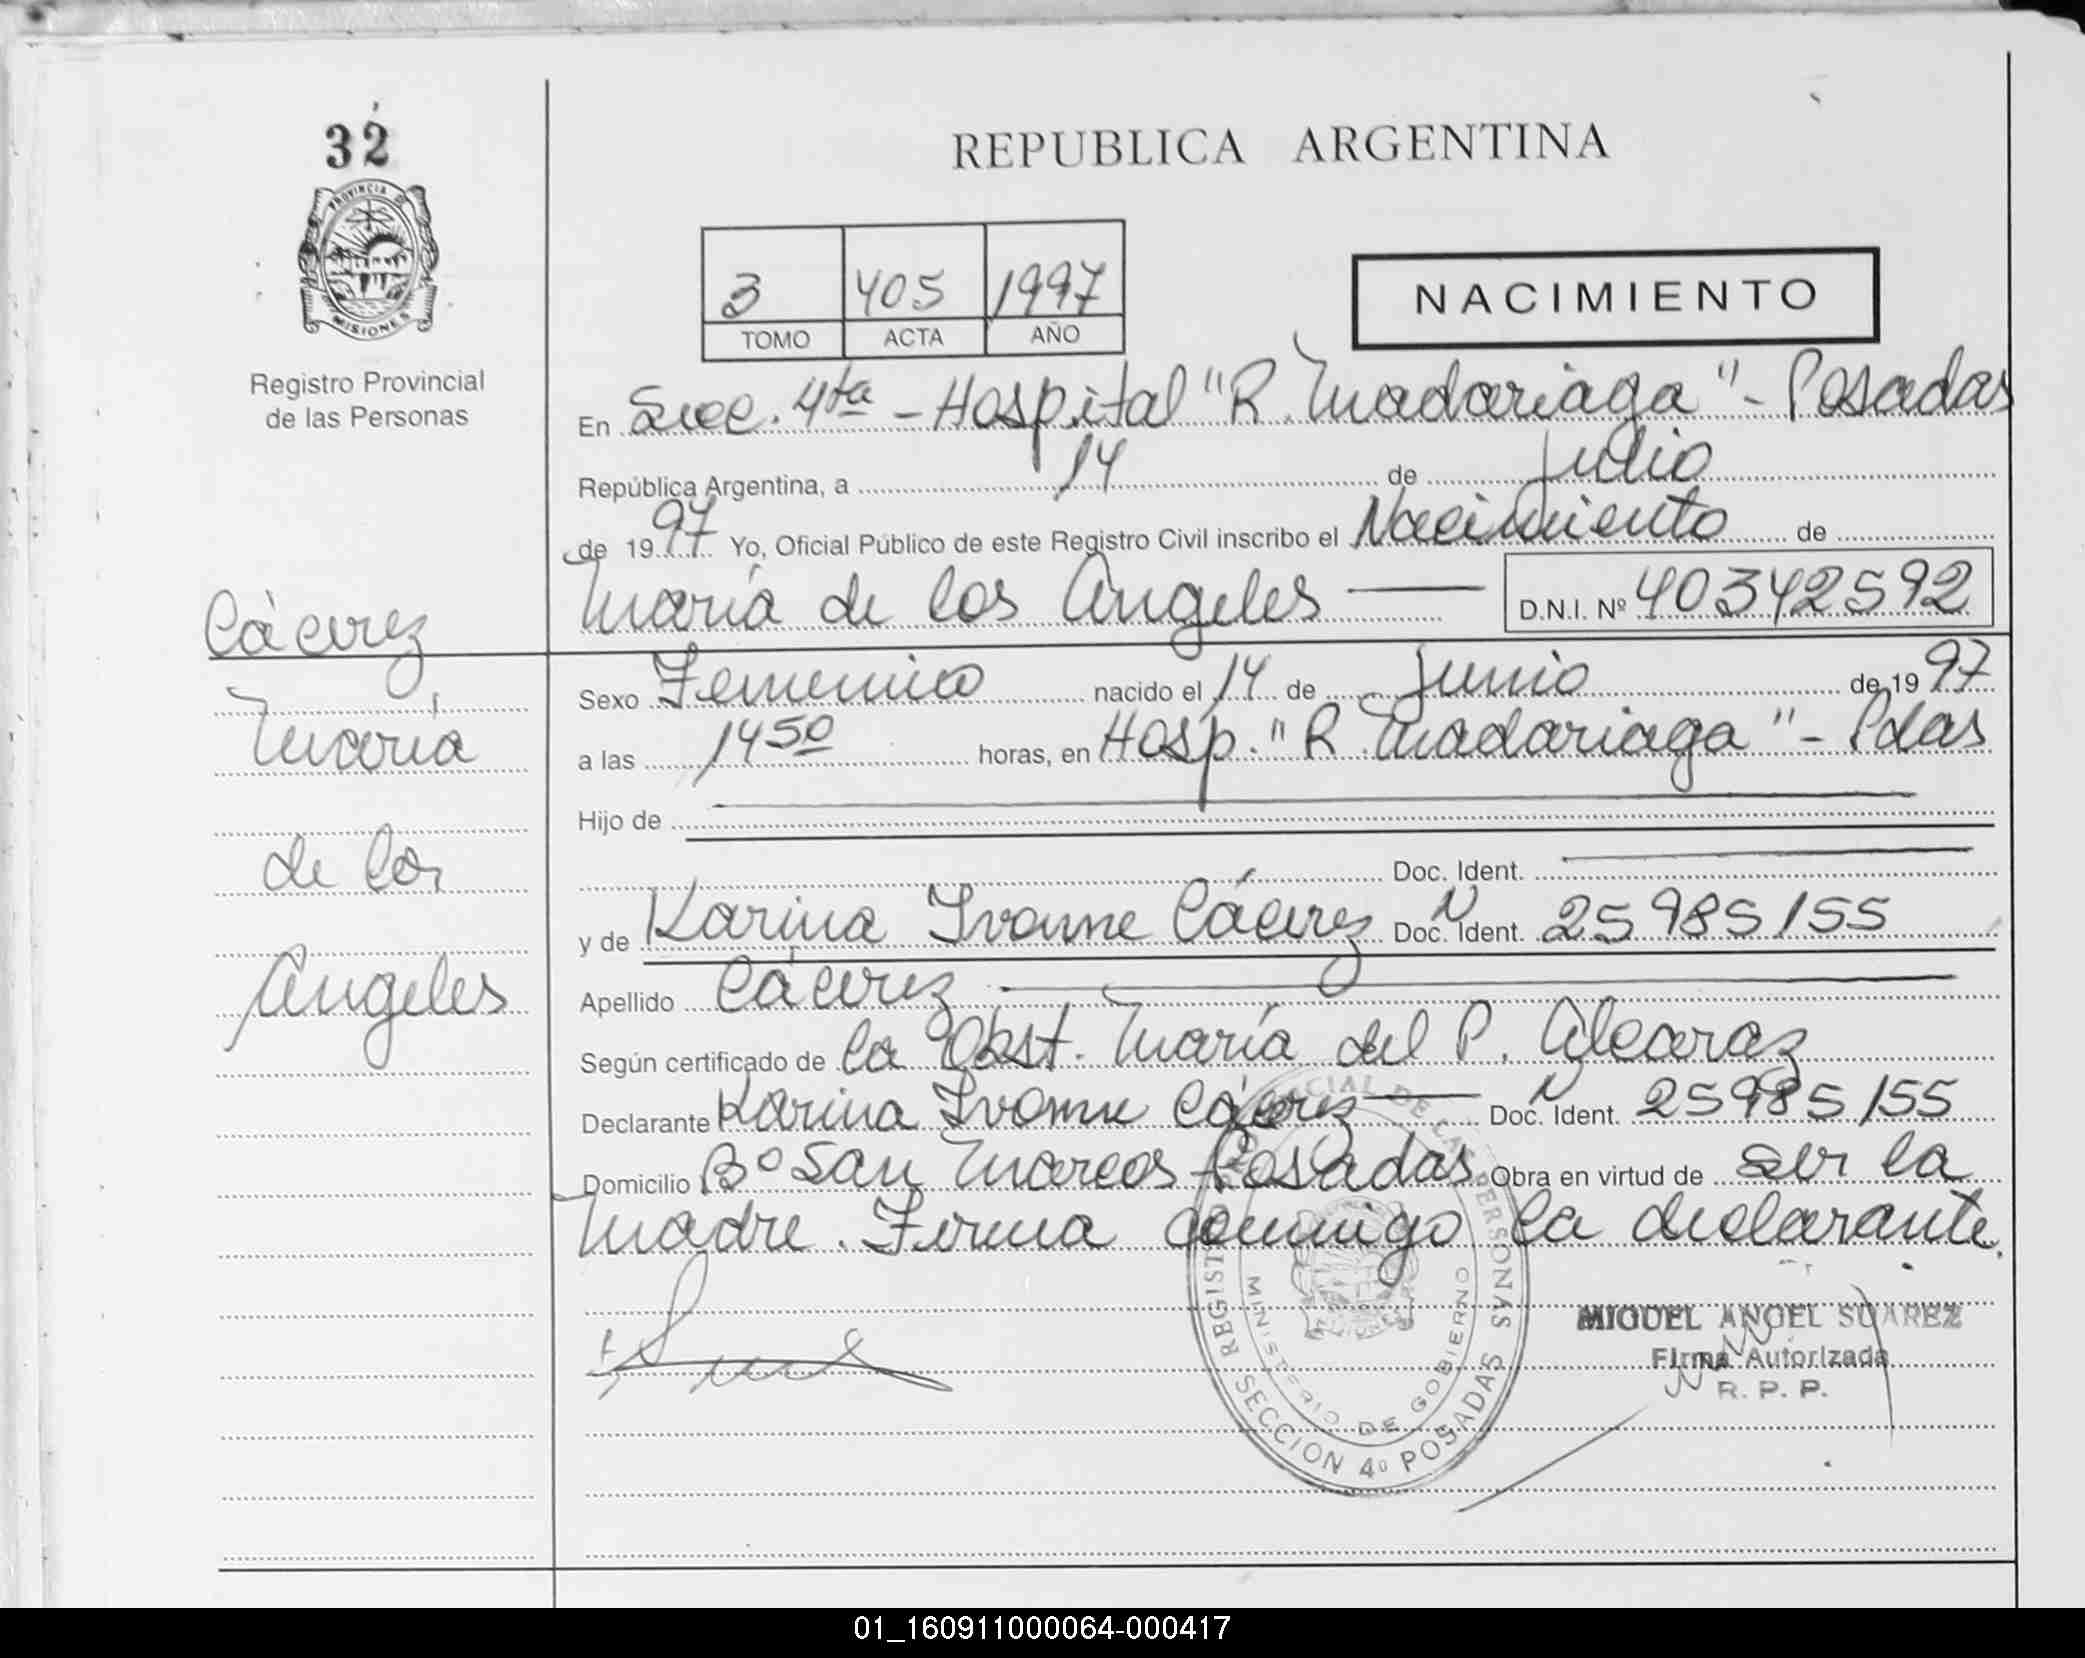 32
PROVINCIA DE
MISIONES
Registro Provincial
de las Personas
REPUBLICA ARGENTINA
3 405 1997
TOMO ACTA AÑO
NACIMIENTO
En Secc. 4ta - Hospital "R. Madariaga" - Posadas
República Argentina, a 14 de Julio
de 1997 Yo, Oficial Público de este Registro Civil inscribo el Nacimiento de
María de los Angeles D.N.I. Nº 40342592
Cácerez
María
de los
Angeles
Sexo Femenino nacido el 14 de Junio de 1997
a las 14 50 horas, en Hosp. "R. Madariaga" - Pdas
Hijo de
Doc. Ident.
y de Karina Ivonne Cácerez Doc. N Ident. 25985155
Apellido Cácerez
Según certificado de la Obst. María del P. Alcaraz
Declarante Karina Ivonne Cácerez Doc. N Ident. 25985155
Domicilio Bº San Marcos Posadas Obra en virtud de ser la
Madre. Firma conmigo la declarante.
MINISTERIO DE GOBIERNO
SECCION 4º POSADAS
MIGUEL ANGEL SUAREZ
Firma Autorizada
R. P. P.
01_160911000064-000417